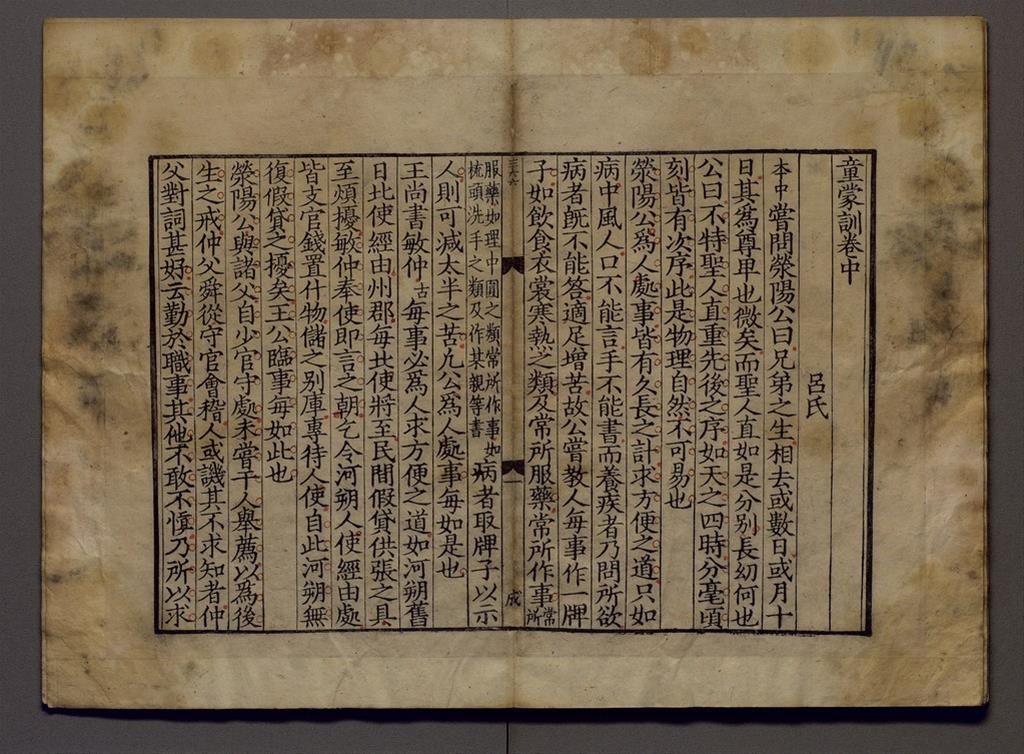 童蒙訓卷中
呂氏
本中嘗問滎陽公曰兄弟之生相去或數日或月十
日其爲尊卑也微矣而聖人直如是分别長幼何也
公曰不特聖人直重先後之序如天之四時分毫頃
刻皆有次序此是物理自然不可易也
滎陽公爲人處事皆有久長之計求方便之道只如
病中風人口不能言手不能書而養疾者乃問所欲
病者旣不能答適足增苦故公嘗教人每事作一牌
子如飲食衣裳寒熱之類及常所服藥常所作事常所
服藥如理中圓之類常所作事如
梳頭洗手之類及作某親等書
病者取牌子以示
人則可減太半之苦凡公爲人處事每如是也
王尚書敏仲古每事必爲人求方便之道如河朔舊
日北使經由州郡每北使將至民間假貸供張之具
至煩擾敏仲奉使即言之朝乞令河朔人使經由處
皆支官錢置什物儲之别庫專待人使自此河朔無
復假貸之擾矣王公臨事每如此也
滎陽公與諸父自少官守處未嘗干人舉薦以爲後
生之戒仲父舜從守官會稽人或譏其不求知者仲
父對詞甚好云勤於職事其他不敢不慎乃所以求
一
成